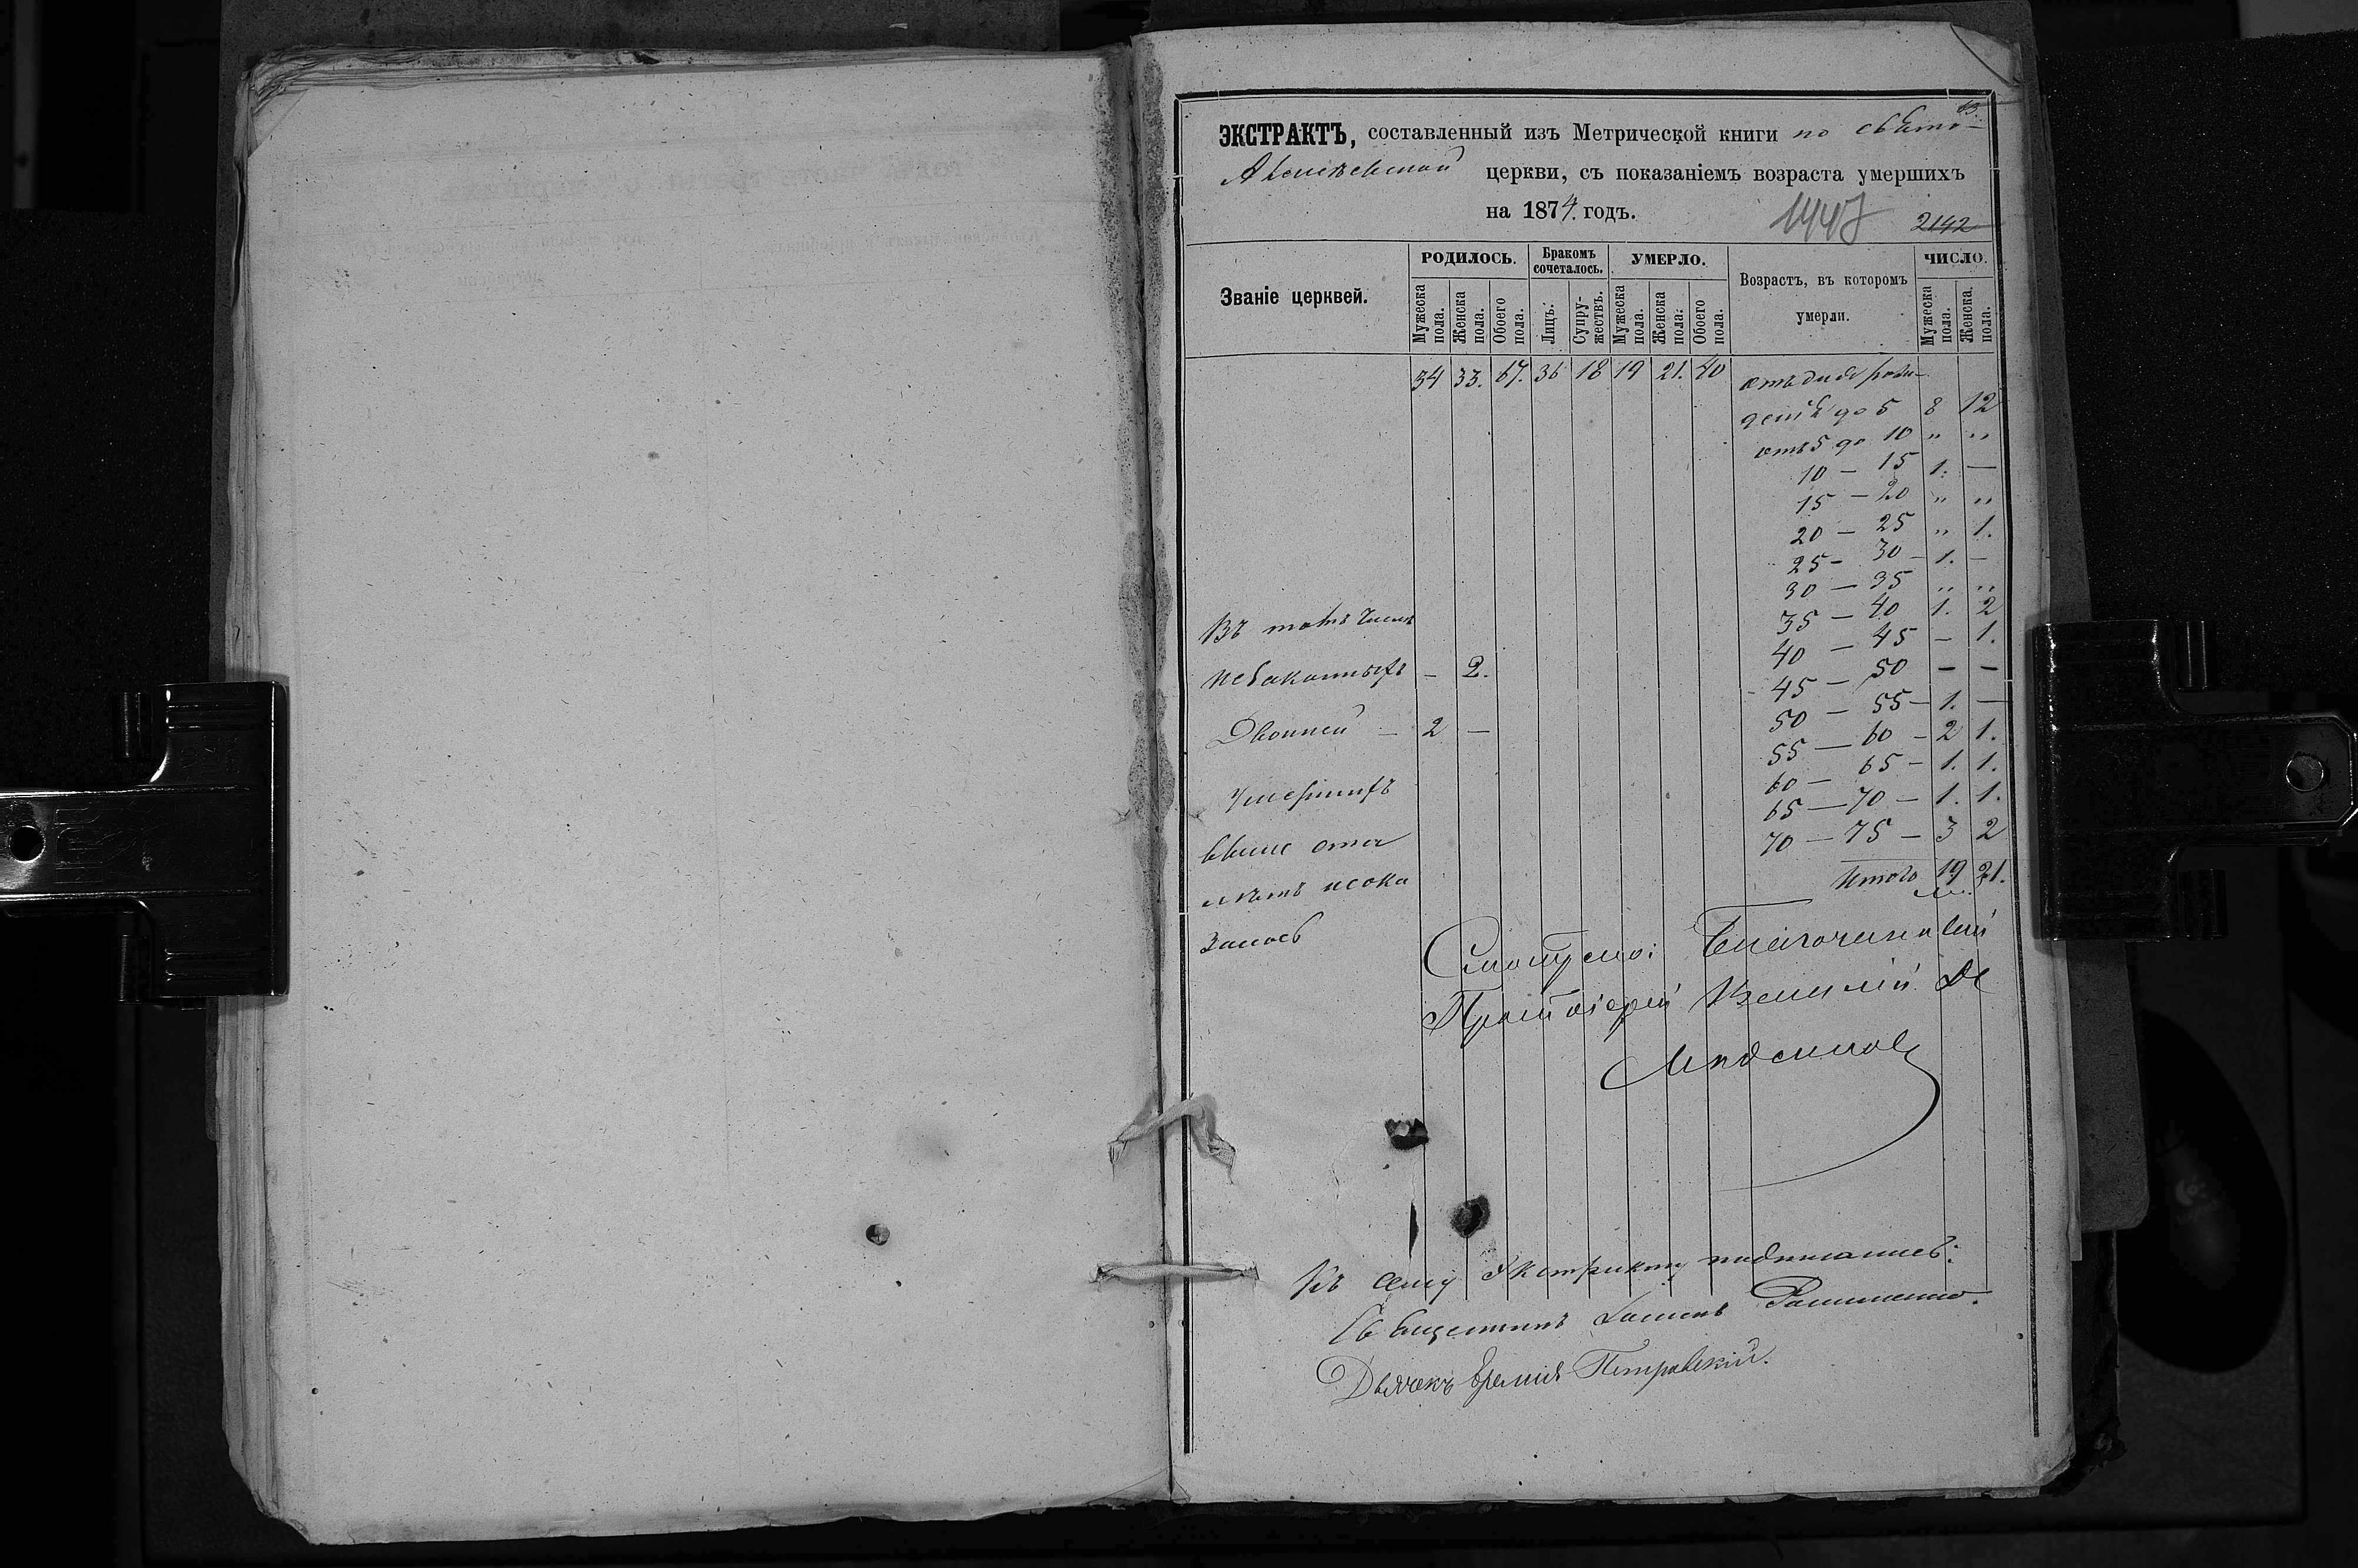 63.
ЭКСТРАКТЪ, составленный изъ Метрической книги по свято-
Алексѣевской церкви, съ показаніемъ возраста умершихъ
на 1874. годъ.
1447 2142
Званіе церквей.
РОДИЛОСЬ. Бракомъ сочеталось. УМЕРЛО. Возрастъ, въ которомъ умерли. ЧИСЛО.
Мужеска пола. Женска пола. Обоего пола. Лицъ. Супружествъ. Мужеска пола. Женска пола. Обоего пола. Мужеска пола. Женска. пола.
34 33. 67. 36 18 19 21. 40 отъ дня рож-
денія до 5 8 12
отъ 5 до 10 " "
10 — 15 1. —
15 — 20 " "
20 — 25 " 1.
25 — 30 — 1. —
30 — 35 " "
35 — 40 1. 2
40 — 45 — 1.
45 — 50 — —
50 — 55 — 1. —
55 — 60 — 2 1.
60 — 65 — 1. 1.
65 — 70 — 1. 1.
70 — 75 — 3 2
Итого 19 21.
Въ томъ числѣ
незаконныхъ — 2.
Двойней — 2 —
Умершихъ
свыше ста
лѣтъ не ока
залось
Благочинный
Протоіерей Василій
Къ сему экстракту подписались:
Священникъ
Дьячекъ Еремія Петровскій.